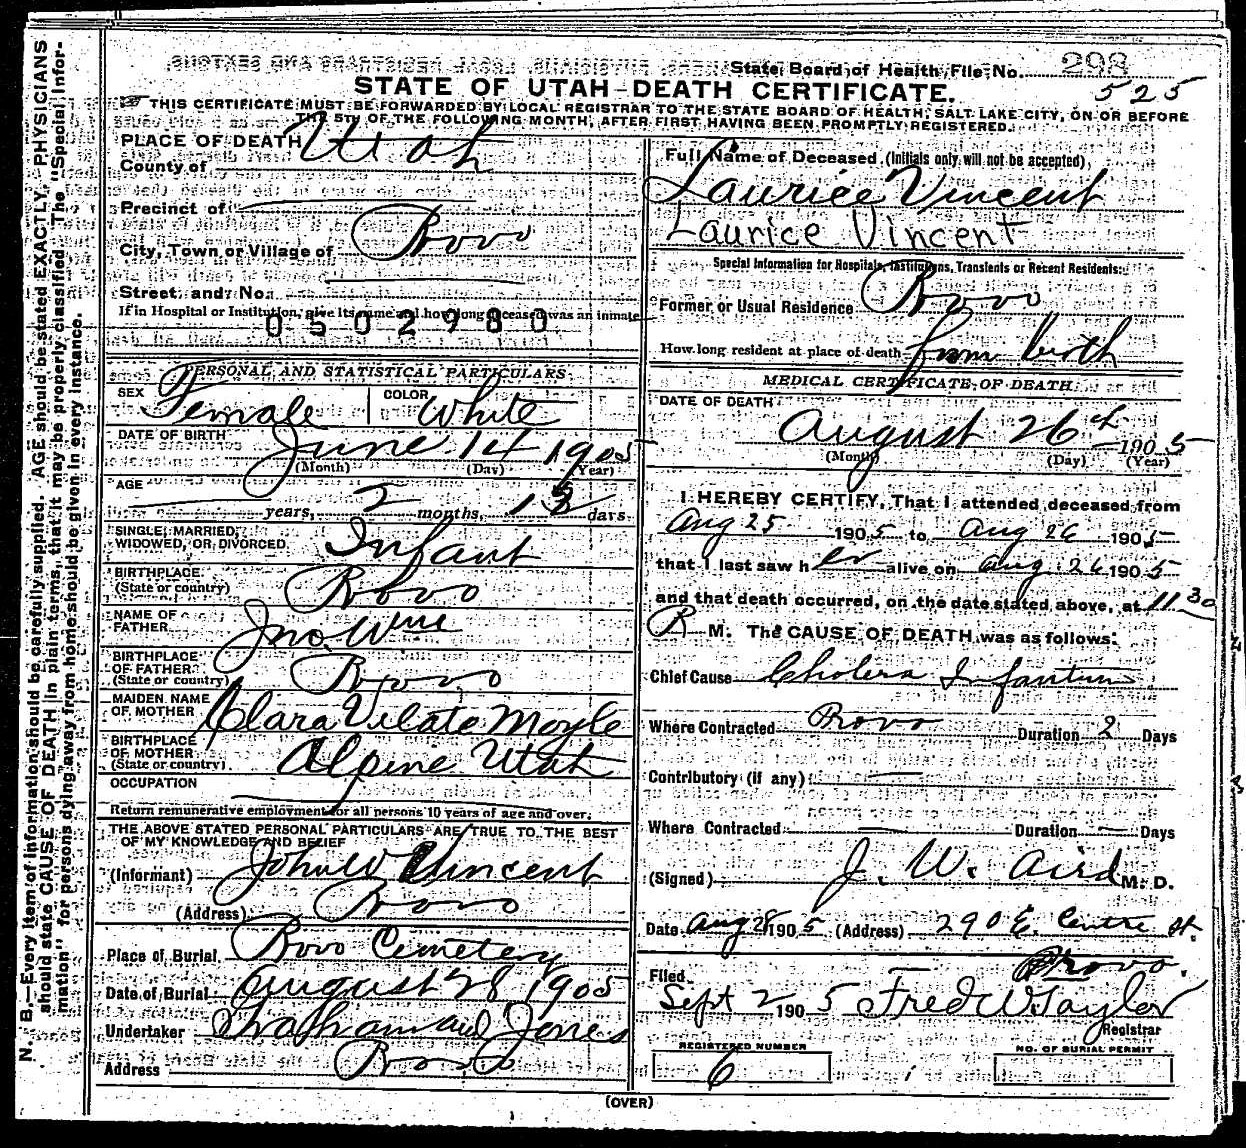 298
State Board of Health File No.
525
STATE OF UTAH—DEATH CERTIFICATE.
THIS CERTIFICATE MUST BE FORWARDED BY LOCAL REGISTRAR TO THE STATE BOARD OF HEALTH, SALT LAKE CITY, ON OR BEFORE
THE 5TH OF THE FOLLOWING MONTH, AFTER FIRST HAVING BEEN PROMPTLY REGISTERED.
N. B.—Every item of information should be carefully supplied. AGE should be stated EXACTLY. PHYSICIANS
should state CAUSE OF DEATH in plain terms, that it may be properly classified. The "Special Infor-
mation" for persons dying away from home should be given in every instance.
PLACE OF DEATH
County of Utah
Precinct of
City, Town or Village of Provo
Street and No.
If in Hospital or Institution, give its name and how long deceased was an inmate
0502980
PERSONAL AND STATISTICAL PARTICULARS
SEX Female COLOR White
DATE OF BIRTH June 14 1905
(Month) (Day) (Year)
AGE
years, 2 months, days
SINGLE, MARRIED,
WIDOWED, OR DIVORCED Infant
BIRTHPLACE
(State or country) Provo
NAME OF
FATHER Jno W
BIRTHPLACE
OF FATHER
(State or country) Provo
MAIDEN NAME
OF MOTHER Clara Vilate Moyle
BIRTHPLACE
OF MOTHER
(State or country) Alpine Utah
OCCUPATION
Return remunerative employment for all persons 10 years of age and over.
THE ABOVE STATED PERSONAL PARTICULARS ARE TRUE TO THE BEST
OF MY KNOWLEDGE AND BELIEF
(Informant) John W Vincent
(Address) Provo
Place of Burial Provo Cemetery
Date of Burial August 28 1905
Undertaker Graham and Jones
Address Provo
Full Name of Deceased (Initials only will not be accepted)
Laurice Vincent
Laurice Vincent
Special Information for Hospitals, Institutions, Transients or Recent Residents:
Former or Usual Residence Provo
How long resident at place of death from birth
MEDICAL CERTIFICATE OF DEATH
DATE OF DEATH
August 26th 1905
(Month) (Day) (Year)
I HEREBY CERTIFY, That I attended deceased from
Aug 25 1905 to Aug 26 1905
that I last saw her alive on Aug. 26 1905
and that death occurred, on the date stated above, at 11 30
P. M. The CAUSE OF DEATH was as follows:
Chief Cause Cholera Infantum
Where Contracted Provo Duration 2 Days
Contributory (if any) —
Where Contracted — Duration — Days
(Signed) J. W. Aird M. D.
Date Aug 28 1905 (Address) 290 E. Centre St.
Provo.
Filed
Sept 2 1905 Fred W Taylor
Registrar
REGISTERED NUMBER
6
NO. OF BURIAL PERMIT
(OVER)